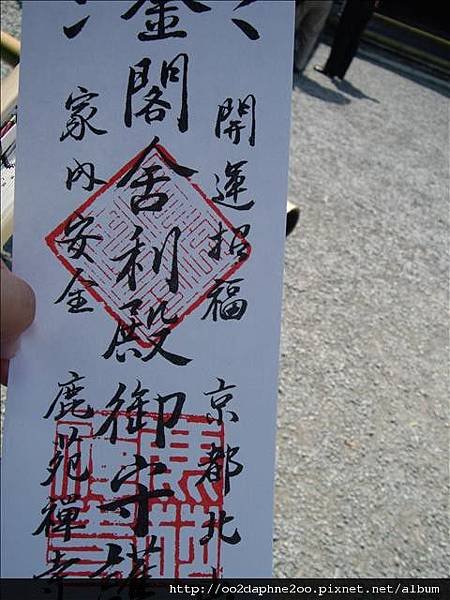 開運招福
京都北
金閣舍利殿御守護
家内安全
鹿苑禅寺
http://oo2daphne2oo.pixnet.net/album